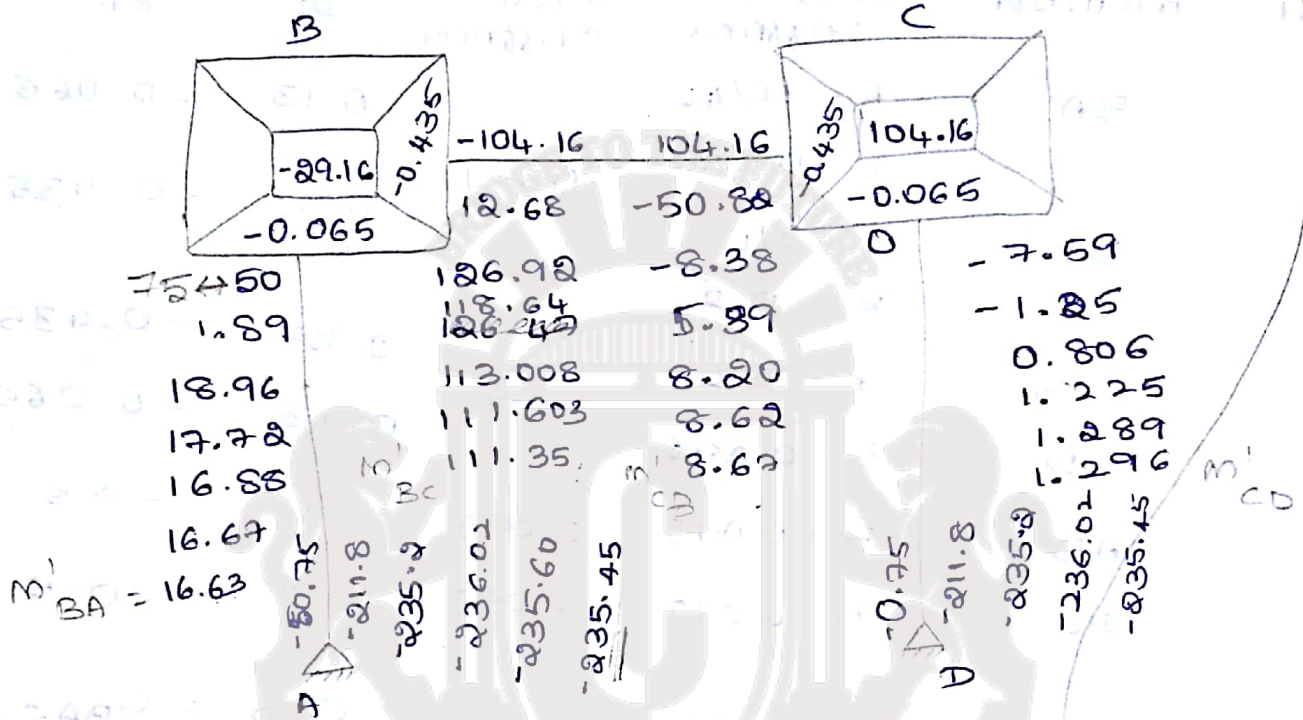 B
C
-29.16
-0.435
-0.065
-104.16 104.16
-0.435
104.16
-0.065
75↔50
1.89
18.96
17.72
16.88
16.67
M'BA = 16.63
12.68
126.92
118.64
113.008
111.603
111.35
M'BC
-50.82
-8.38
5.39
8.20
8.62
8.67
M'CB
0
-7.59
-1.25
0.806
1.225
1.289
1.296
M'CD
-50.75
-211.8
-235.2
-236.02
-235.60
-235.45
A
-0.75
-211.8
-235.2
-236.02
-235.45
D
BRIDGE TO THE FUTURE